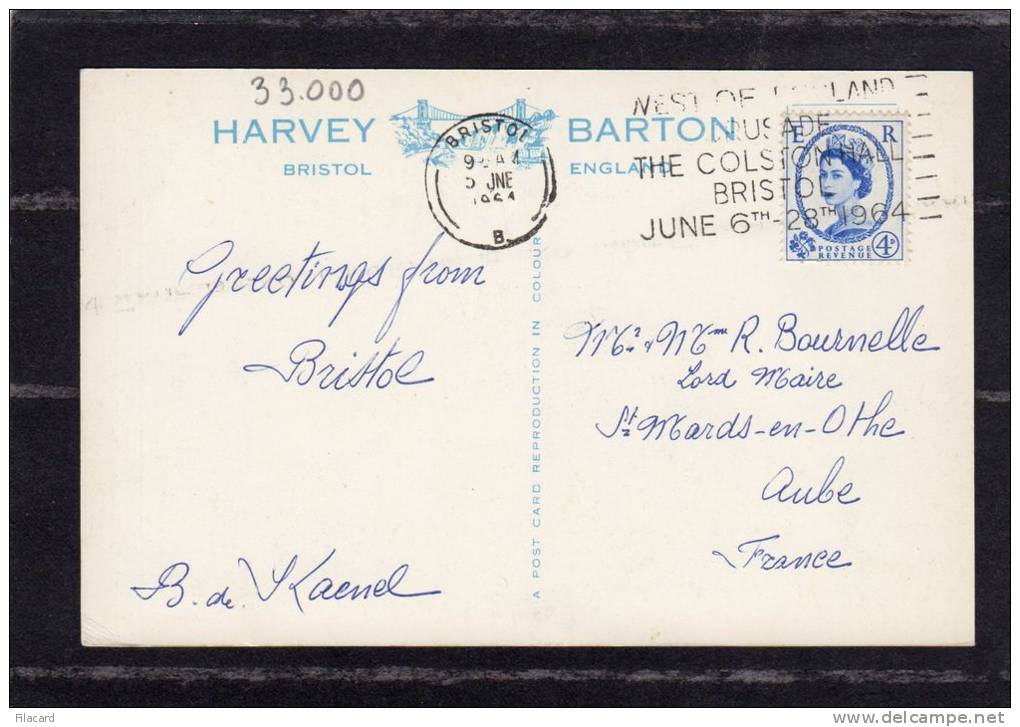 33.000
HARVEY BARTON
BRISTOL ENGLAND
BRISTOL
5 JNE
1964
B.
WEST OF ENGLAND
CRUSADE
THE COLSTON HALL
BRISTOL
JUNE 6TH-28TH 1964
E R
POSTAGE
REVENUE
4D
Greetings from
Bristol
B. de Kaenel
A POST CARD REPRODUCTION IN COLOUR
Mr & Mme R. Bournelle
Lord Maire
St Mards-en-Othe
Aube
France
Filacard
www.delcampe.net